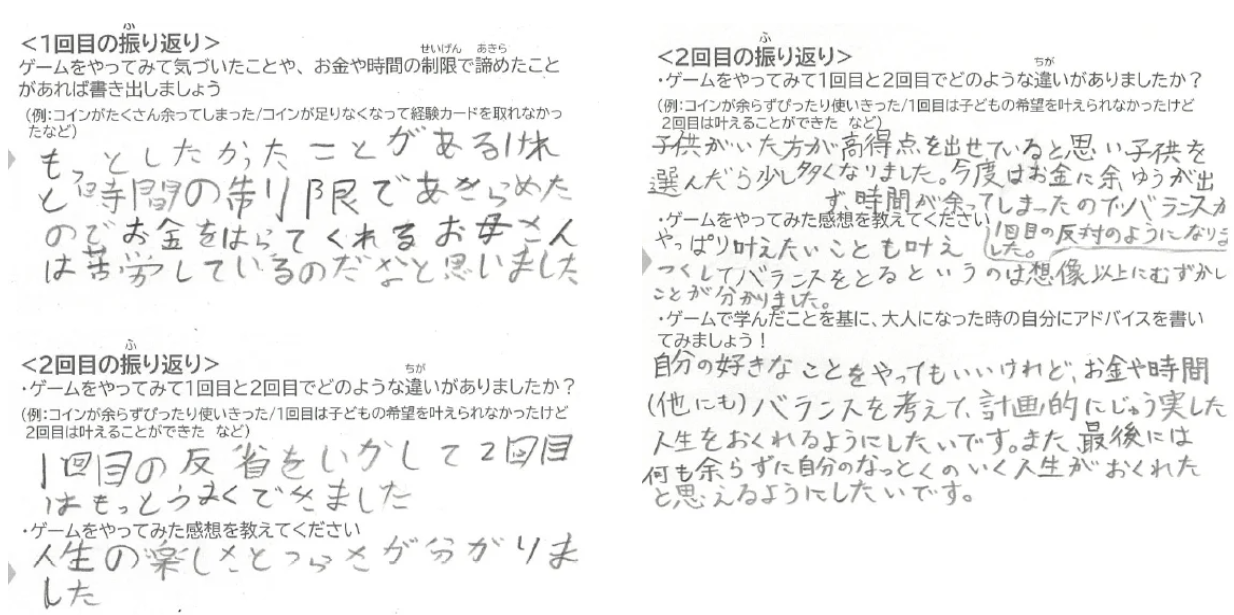 <1回目の振り返り>
ゲームをやってみて気づいたことや、お金や時間の制限で諦めたこと
があれば書き出しましょう
(例:コインがたくさん余ってしまった/コインが足りなくなって経験カードを取れなかっ
たなど)
もっとしたかったことがあるけれ
ど時間の制限であきらめた
のでお金をはらてくれるお母さん
は苦労しているのだなと思いました
<2回目の振り返り>
・ゲームをやってみて1回目と2回目でどのような違いがありましたか?
(例:コインが余らずぴったり使いきった/1回目は子どもの希望を叶えられなかったけど
2回目は叶えることができた など)
1回目の反省をいかして2回目
はもっとうまくできました
・ゲームをやってみた感想を教えてください
人生の楽しさとつらさが分かりま
した
<2回目の振り返り>
・ゲームをやってみて1回目と2回目でどのような違いがありましたか?
(例:コインが余らずぴったり使いきった/1回目は子どもの希望を叶えられなかったけど
2回目は叶えることができた など)
子供がいた方が高得点を出せていると思い子供を
選んだら少し多くなりました。今度はお金に余ゆうが出
ず、時間が余ってしまったのでバランスが
1回目の反対のようになりま
した。
・ゲームをやってみた感想を教えてください
やっぱり叶えたいことも叶え
つくしてバランスをとるというのは想像以上にむずかし
ことが分かりました。
・ゲームで学んだことを基に、大人になった時の自分にアドバイスを書い
てみましょう!
自分の好きなことをやってもいいけれど、お金や時間
(他にも)バランスを考えて、計画的にじゅう実した
人生をおくれるようにしたいです。また、最後には
何も余らずに自分のなっとくのいく人生がおくれた
と思えるようにしたいです。